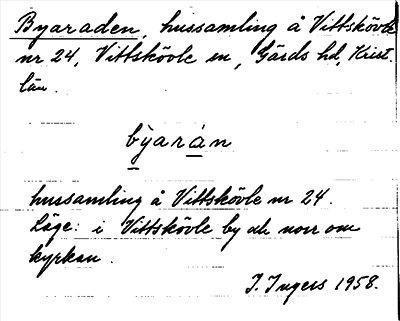 Byaraden, hussamling å Vittskövle
nr 24, Vittskövle sn, Gärds hd, Krist.
län.
byarán
hussamling å Vittskövle nr 24.
Läge: i Vittskövle by ah norr om
kyrkan.
I. Ingers 1958.